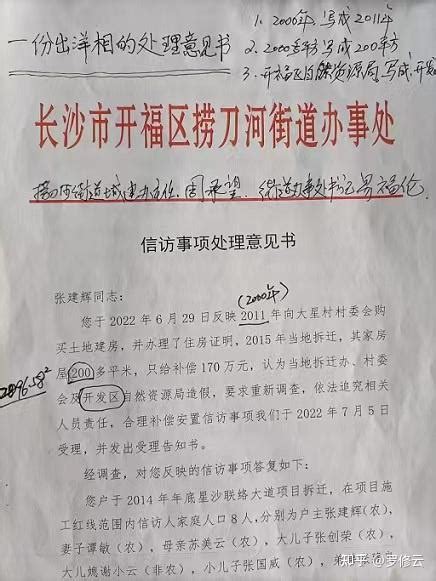 1. 2000年写成2011年
一份出洋相的处理意见书
2. 2000多平方写成200平方
3. 开福区自然资源局写成开发
长沙市开福区捞刀河街道办事处
捞刀河街道城建办主任周承望、街道办事处书记易福伦
信访事项处理意见书
张建辉同志：
(2000年)
您于 2022 年 6 月 29 日反映 2011 年向大星村村委会购
买土地建房，并办理了住房证明，2015 年当地拆迁，其家房
屋 200 多平米，只给补偿 170 万元，认为当地拆迁办、村委
2896.58²
会及开发区自然资源局造假，要求重新调查，依法追究相关
人员责任，合理补偿安置信访事项我们于 2022 年 7 月 5 日
受理，并发出受理告知书。
经调查，对您反映的信访事项答复如下：
您户于 2014 年年底星沙联络大道项目拆迁，在项目施
工红线范围内信访人家庭人口 8 人，分别为户主张建辉(农)，
妻子谭敏（农），母亲苏美云（农），大儿子张创荣（农），
大儿媳谢小云（非农），小儿子张国威（农），弟
知乎 @罗修云